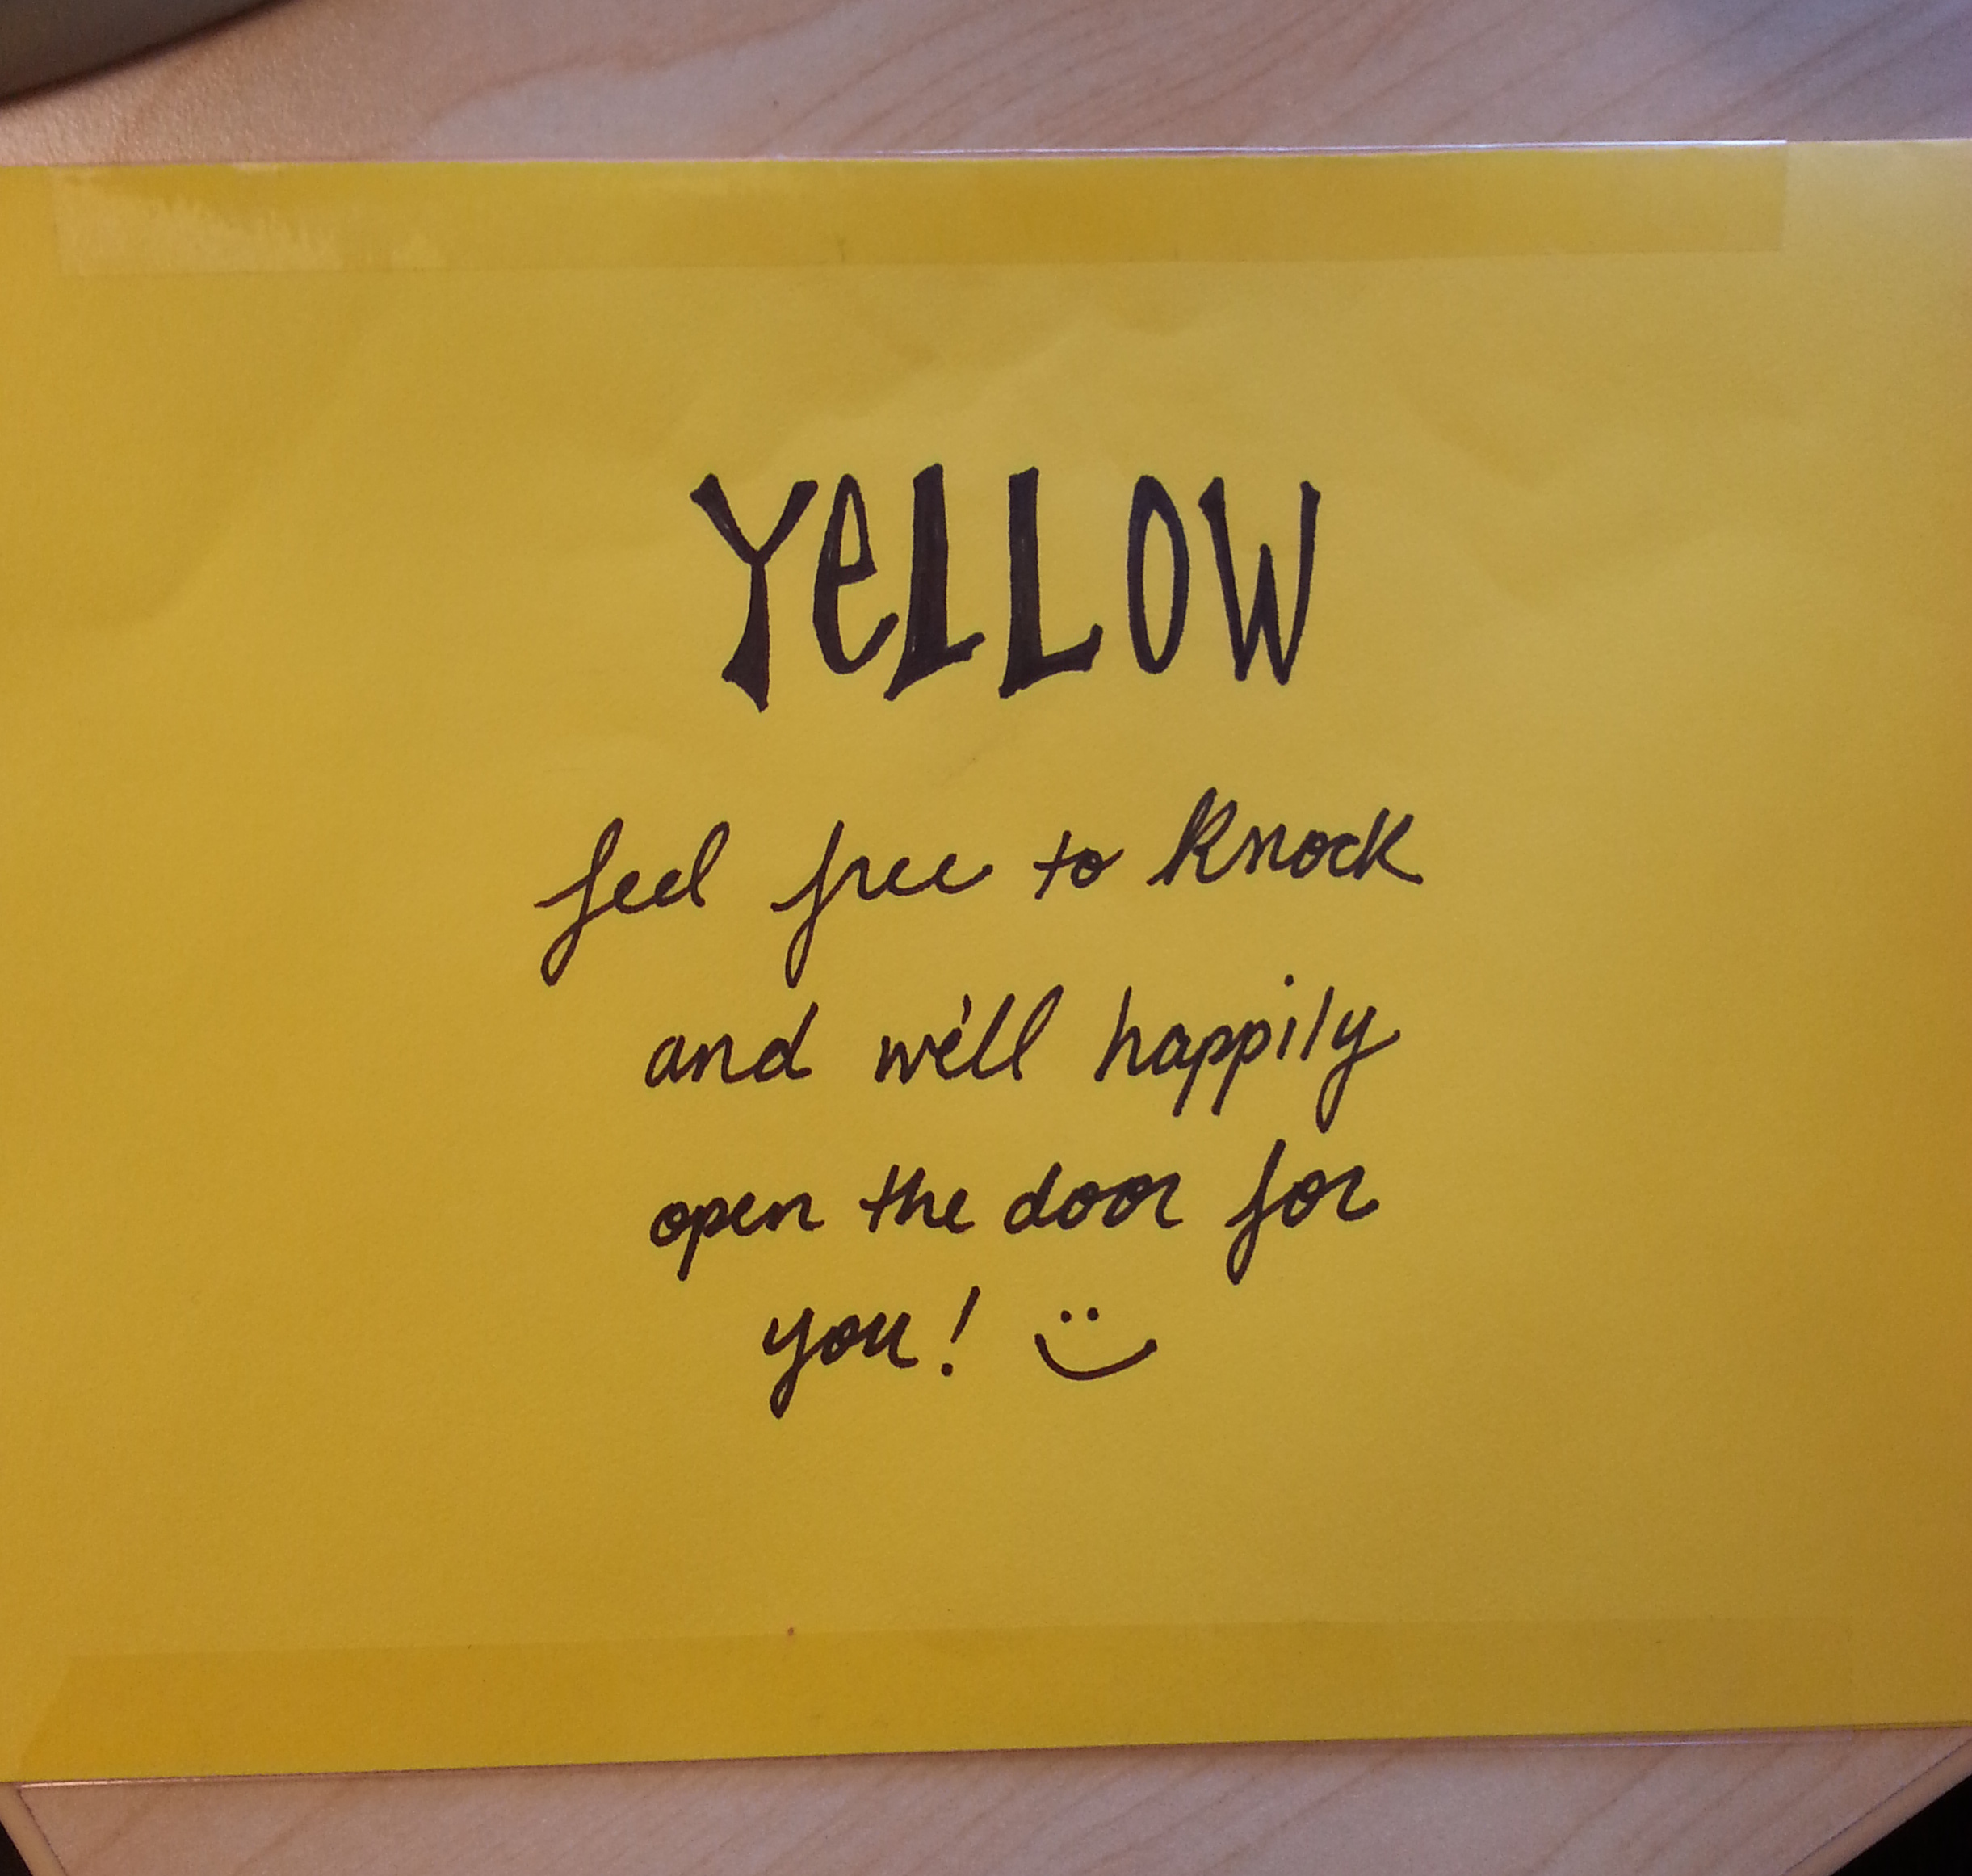 YeLLOW
feel free to knock
and we'll happily
open the door for
you! :)